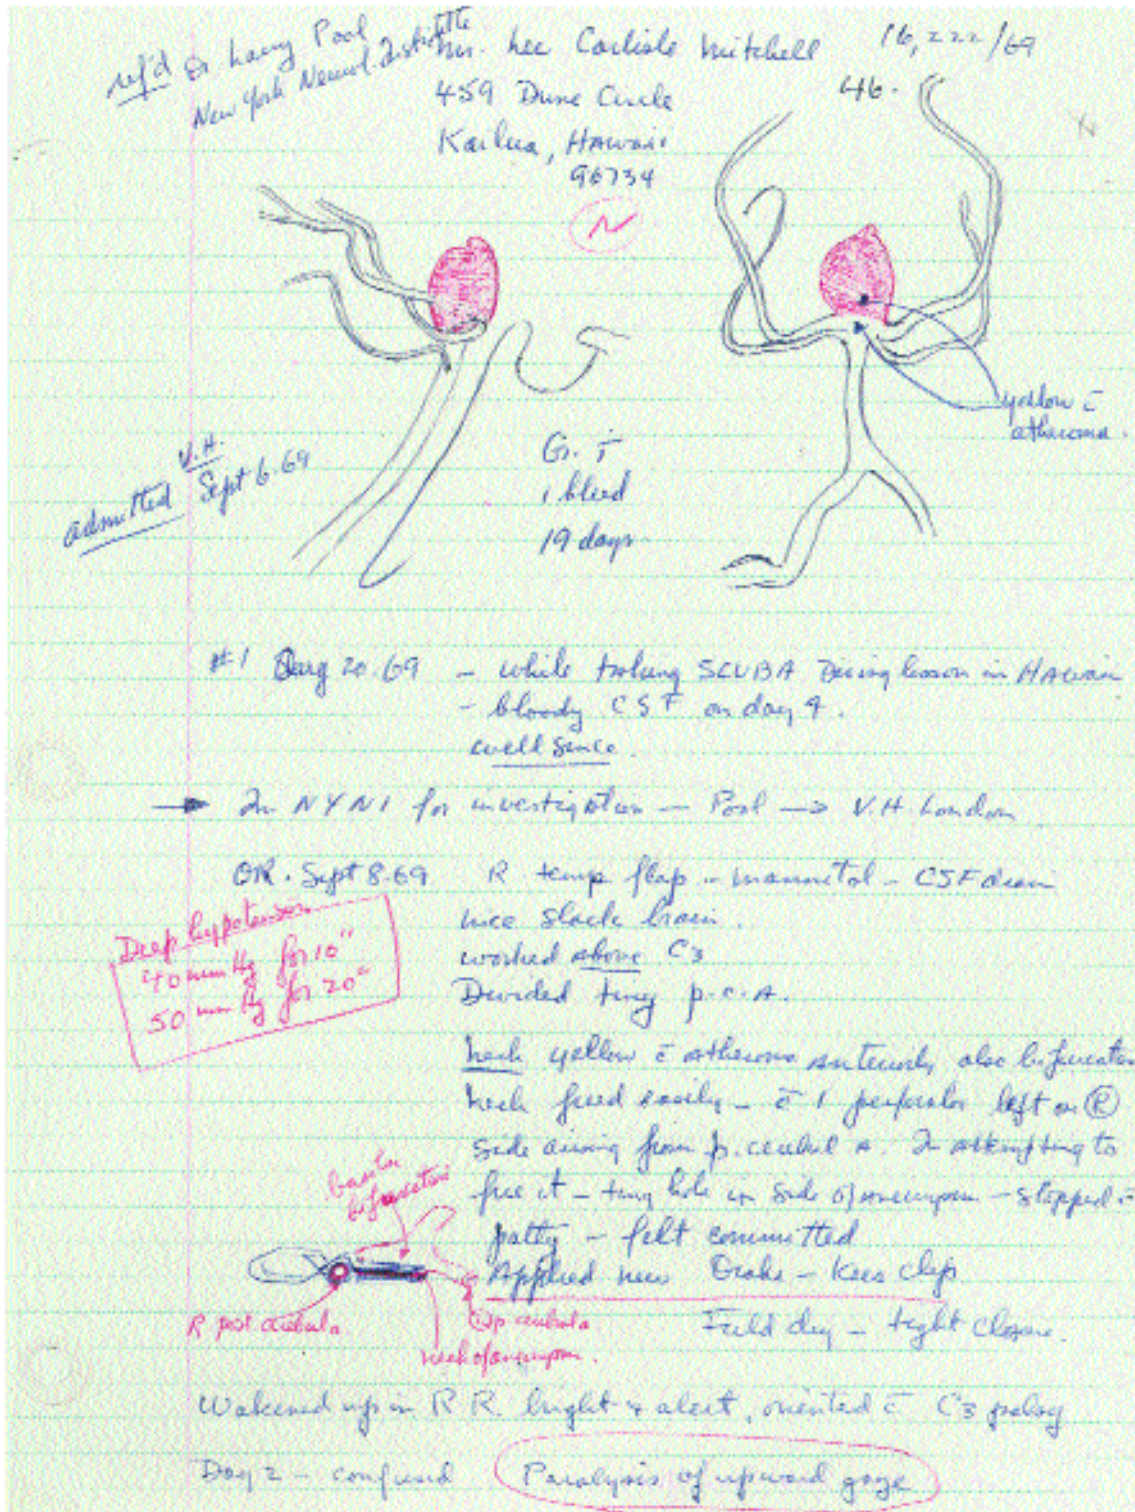 ref'd Dr Larry Pool
New York Neurol. Institute
Mr. Lee Carlisle Mitchell
16,222/69
459 Dune Circle
46.
Kailua, Hawaii
96734
N
yellow c̄
atheroma.
V.H.
admitted Sept 6.69
Gr. i
1 bleed
19 days
#1 Aug 20.69 – while taking SCUBA Diving lesson in Hawaii
– bloody CSF on day 4.
well since.
→ In NYNI for investigation — Pool → V.H. London
OR. Sept 8.69 R temp flap – mannitol – CSF drain
nice slack brain.
worked above C3
Divided tiny p.c.A.
Deep hypotension
40 mm Hg for 10"
50 mm Hg for 20"
neck yellow c̄ atheroma anteriorly also bifurcation
neck freed easily – c̄ 1 perforator left on Ⓡ
side arising from p. cerebral A. In attempting to
free it – tiny hole in side of aneurysm – stopped c̄
patty – felt committed
Applied new Drake – Kees clip
Field dry – tight closure.
basilar
bifurcation
R post cerebral a.
Ⓛ p cerebral a
neck of aneurysm.
Wakened up in R R. bright & alert, oriented c̄ C3 palsy
Day 2 – confused Paralysis of upward gaze